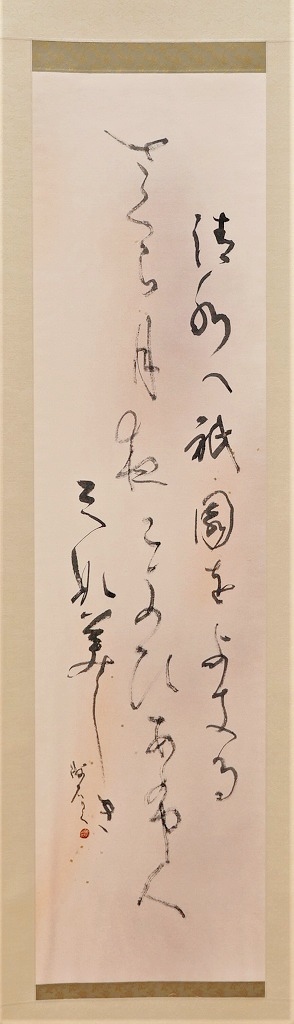 清水へ祇園をよきる
さくら月夜こよひあふ人
みな美しき